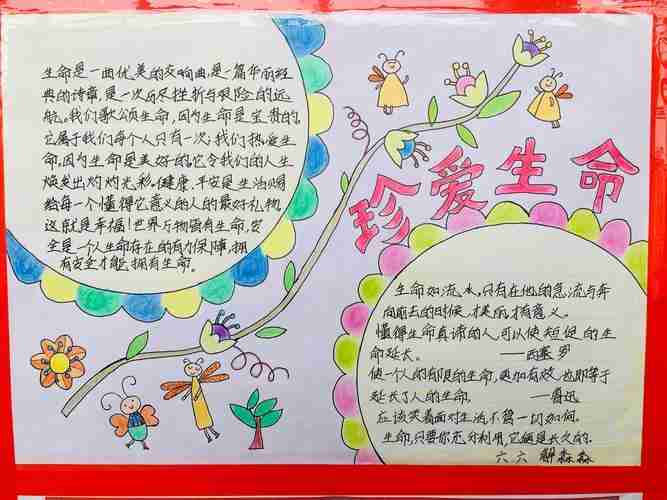 生命是一曲优美的交响曲,是一篇华丽经
典的诗章,是一次历尽挫折与艰险的远
航。我们歌颂生命,因为生命是宝贵的,
它属于我们每个人只有一次;我们热爱生
命,因为生命是美好的,它令我们的人生
焕发出灼灼光彩。健康、平安是生活赐
给每一个懂得它意义的人的最好礼物,
这就是幸福!世界万物需有生命,安
全是一个人生命存在的有力保障,拥
有安全才能拥有生命。
珍爱生命
生命如流水,只有在他的急流与奔
向前去的时候,才美丽,才有意义。
懂得生命真谛的人,可以使短促的生
命延长。 ——西塞罗
使一个人的有限的生命,更加有效,也即等于
延长了人的生命。 ——鲁迅
应该笑着面对生活,不管一切如何。
生命,只要你充分利用,它便是长久的。
六六 解森森